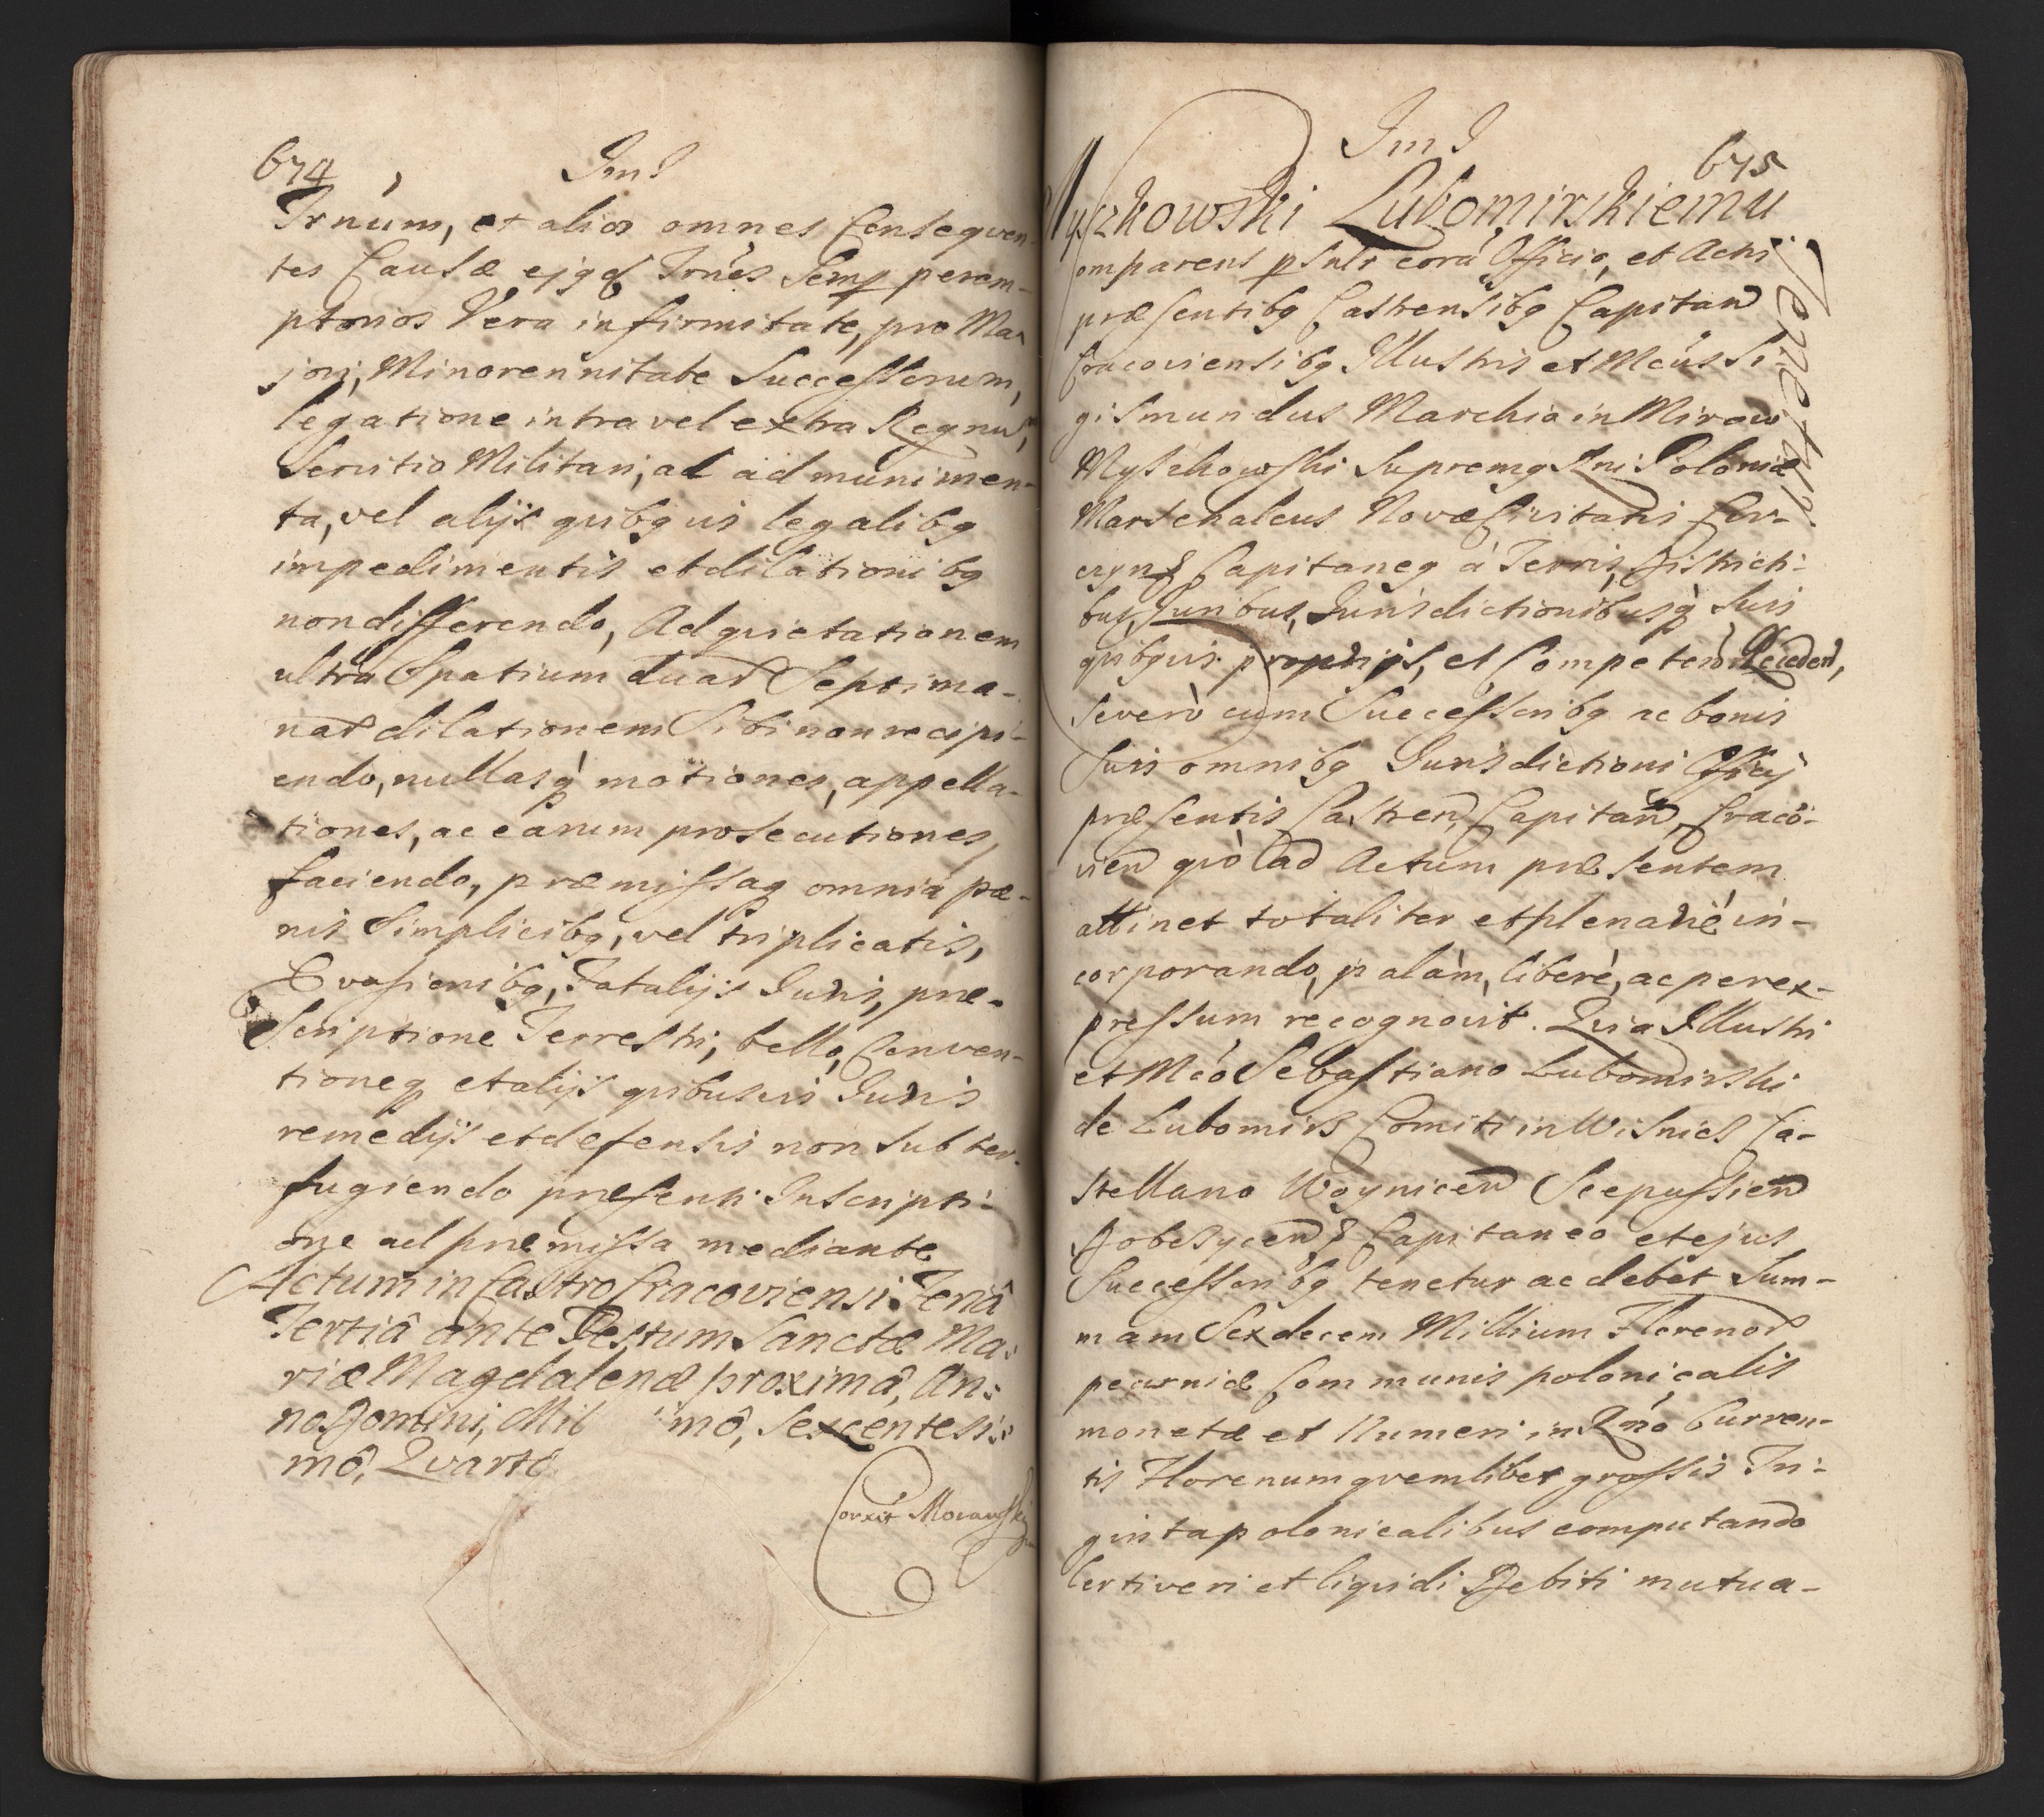 674
JmJ
Trnúm, et alios omnes Conseqven-
tes Causæ ejgd Trnës Semp perem-
ptorios Vera infirmitate, pro Ma-
jori, Minorennitate Successorum,
legatione intra vel extra Regnu,
Servitio Militari, ad ad munimen-
ta, vel alijs qvibqvis legalibg
impedimentis et dilationibg
non differendo, Ad qvietationem
ultra Spatium duar Septima-
nar dilationem Sibi non recipi-
endo, nullasq motiones, appella-
tiones, ac earum prosecutiones,
faciendo, præmissaq omnia pæ-
nis Simplicibg, vel triplicatis,
Evasionibg, Fatalijs Juris, præ-
Scriptione Terrestri, bello, Conven-
tioneq et alijs qvibusvis Juris
remedijs et defensis non Subter-
fugiendo præsenti Inscripti-
one ad præmissa mediante
Actum in Castro Cracoviensi Feriâ
Tertiâ ante Festum Sanctæ Ma-
riæ Magdalenæ proximâ, An-
no Domini, Mil mô, Sexcentesi-
mô, Qvartô
Corxit Morawski
JmJ
675
Myszkowski Lubomirskiemu
Tenetur
omparens psnlr corá Officio, et Actis
præsentibg Castrensibg Capitan
Cracoviensibg Illustris et Mcús Si-
gismundus Marchio in Mirow
Myszkowski Supremg Rni Poloniæ
Marschalcus Novæ Civitatis Cor-
czyn & Capitaneg à Terris, Districti-
bus, Juribus, Jurisdictionibusq Suis
qvibqvis proprijs, et Competen Recedend,
Severò cum Successoribg ac bonis
Suis omnibg Jurisdictioni Officij
præsentis Castren, Capitan, Craco-
vien qvò ad Actum præsentem
attinet totaliter et plenariè in-
corporando, palàm, liberè, ac per ex-
pressum recognovit. Qvia Illustri
et Mcó Sebastiano Lubomirski
de Lubomirs Comiti in Wisnics Ca-
stellano Woynicen Scepussien
Dobczycen & Capitaneo et ejus
Successoribg tenetur ac debet Sum-
mam Sexdecem Millium Florenor
pecuniæ Communis polonicalis
monetæ et Numeri in Rno Curren-
tis Florenum qvemlibet grossis Tri-
ginta polonicalibus computando
Certi veri et liqvidi Debiti mutua-